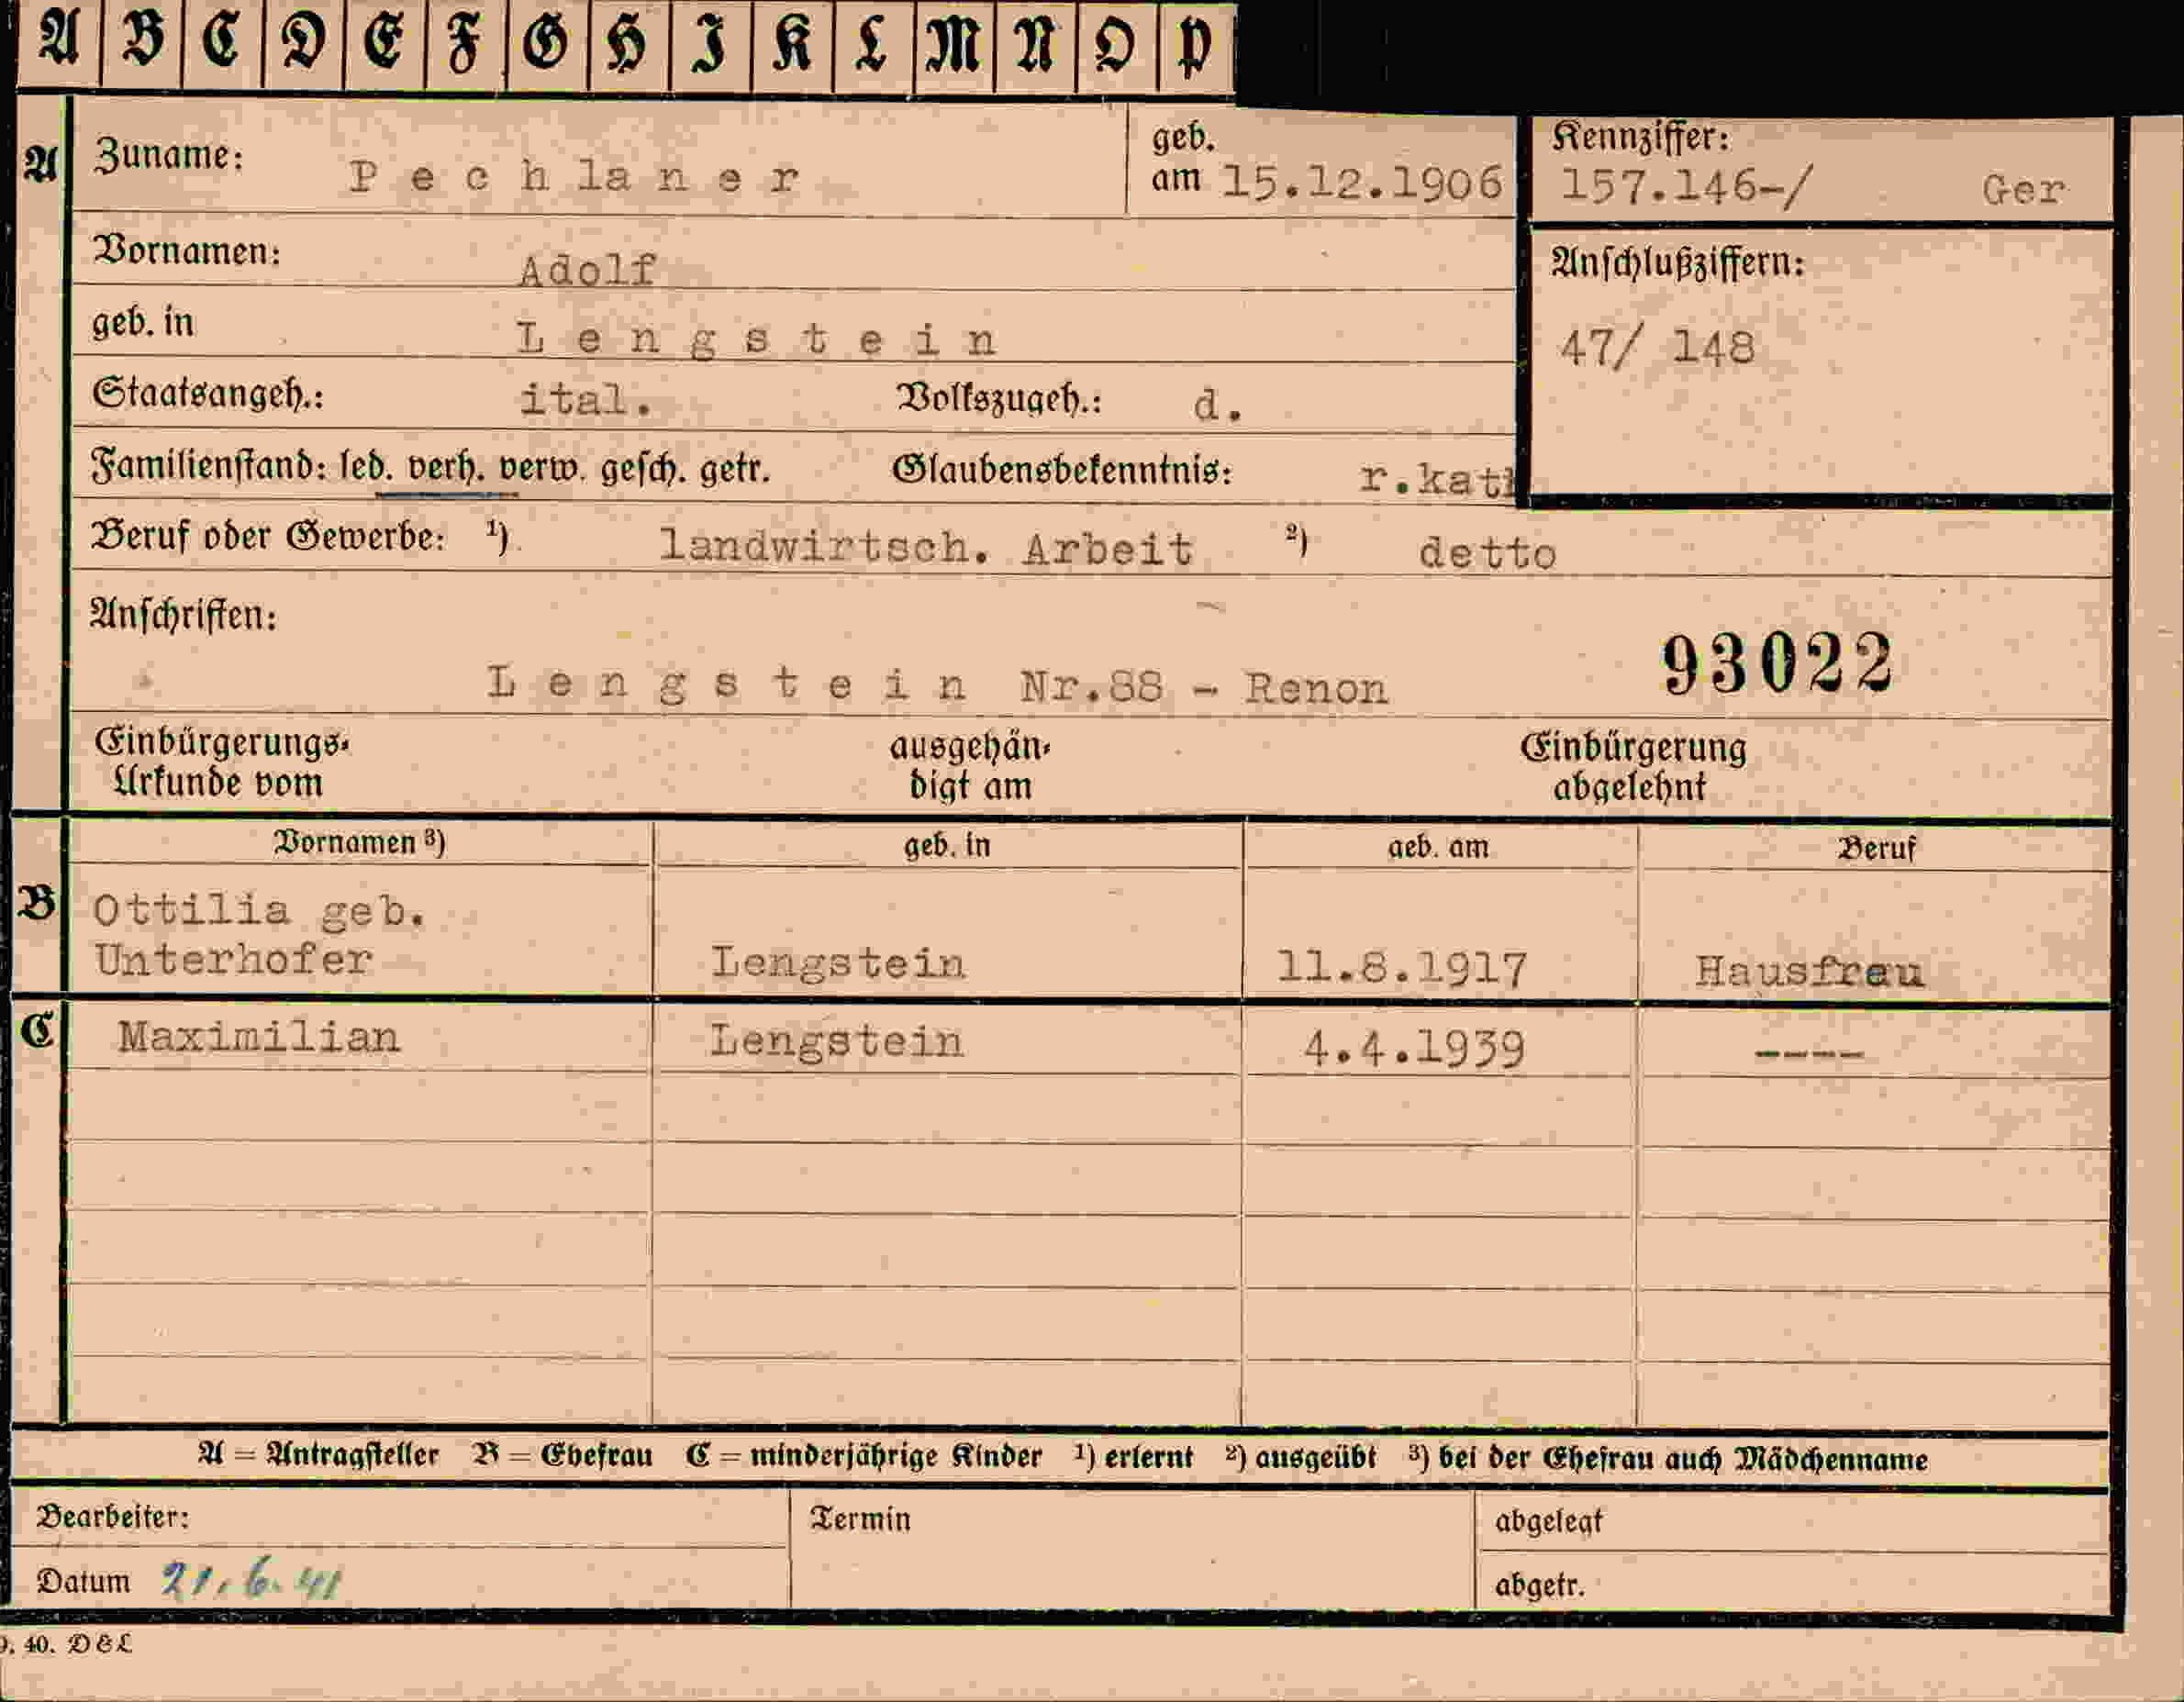 A B C D E F G H I K L M N O P
A Zuname: Pechlaner geb. am 15.12.1906 Kennziffer: 157.146-/ Ger
Vornamen: Adolf Anschlußziffern:
geb. in Lengstein 47/ 148
Staatsangeh.: ital. Volkszugeh.: d.
Familienstand: led. verh. verw. gesch. getr. Glaubensbekenntnis: r.kath
Beruf oder Gewerbe: 1) landwirtsch. Arbeit 2) detto
Anschriften:
93022
Lengstein Nr.88 - Renon
Einbürgerungs- ausgehän- Einbürgerung
Urkunde vom digt am abgelehnt
Vornamen 3) geb. in geb. am Beruf
B Ottilia geb.
Unterhofer Lengstein 11.8.1917 Hausfrau
C Maximilian Lengstein 4.4.1939 ----
A = Antragsteller B = Ehefrau C = minderjährige Kinder 1) erlernt 2) ausgeübt 3) bei der Ehefrau auch Mädchenname
Bearbeiter: Termin abgelegt
Datum 21.6.41 abgetr.
9. 40. DEL